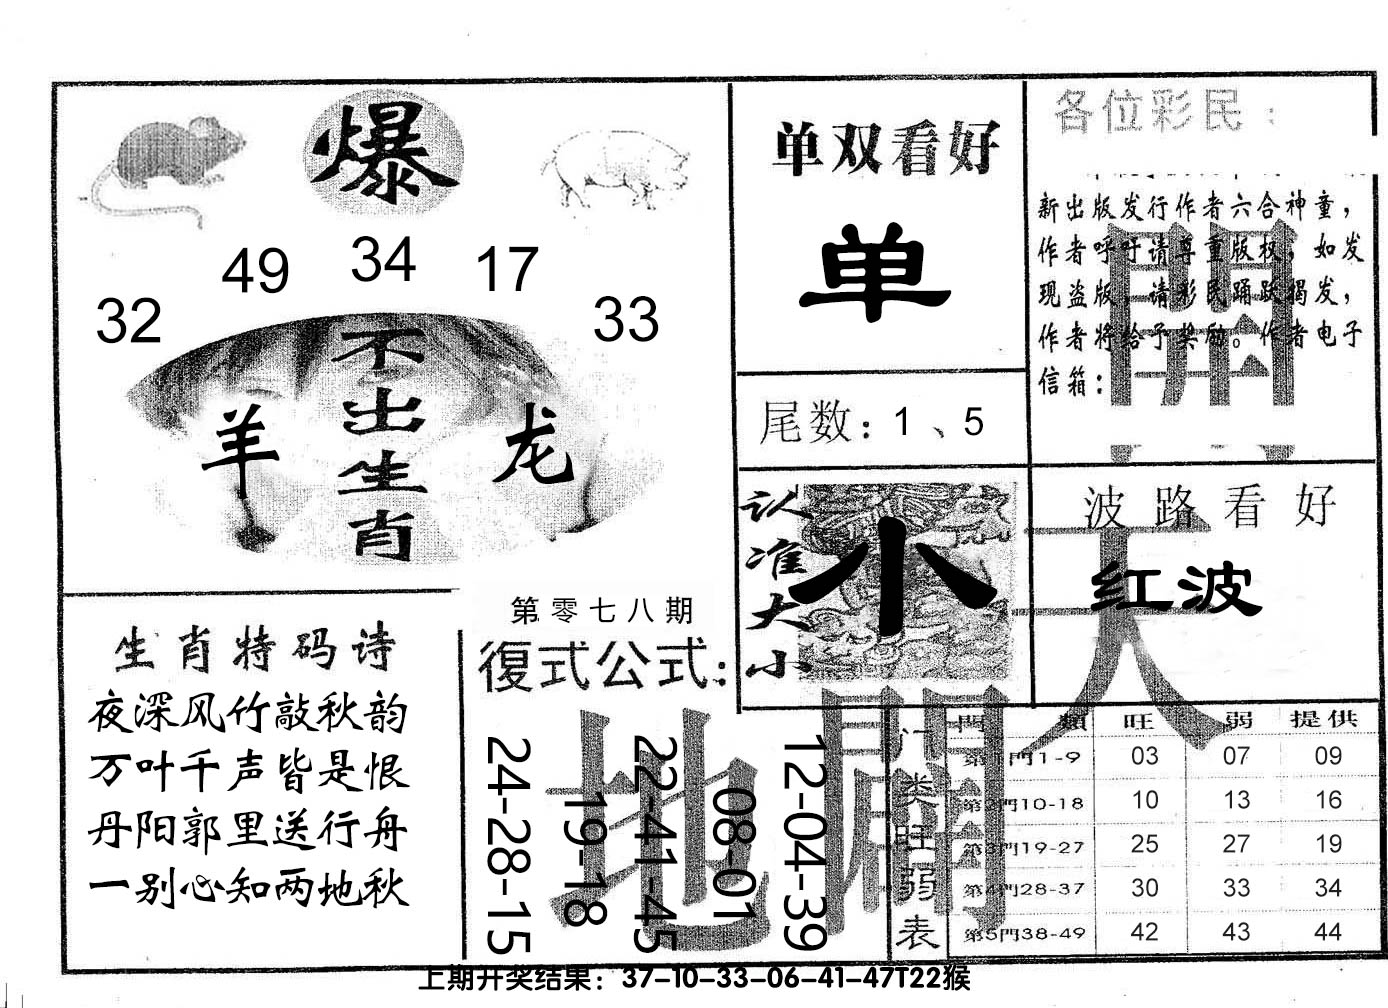 爆
32
49
34
17
33
不出生肖
羊
龙
单双看好
单
尾数：1、5
各位彩民：
新出版发行作者六合神童，
作者呼吁请尊重版权，如发
现盗版，请彩民踊跃揭发，
作者将给予奖励。作者电子
信箱：
開
认准大小
小
波路看好
红波
天
生肖特码诗
夜深风竹敲秋韵
万叶千声皆是恨
丹阳郭里送行舟
一别心知两地秋
第零七八期
復式公式：
24-28-15
19-18
22-41-45
08-01
12-04-39
地
门类旺弱表
門類 旺 弱 提供
第1門1-9 03 07 09
第2門10-18 10 13 16
第3門19-27 25 27 19
第4門28-37 30 33 34
第5門38-49 42 43 44
上期开奖结果：37-10-33-06-41-47T22猴